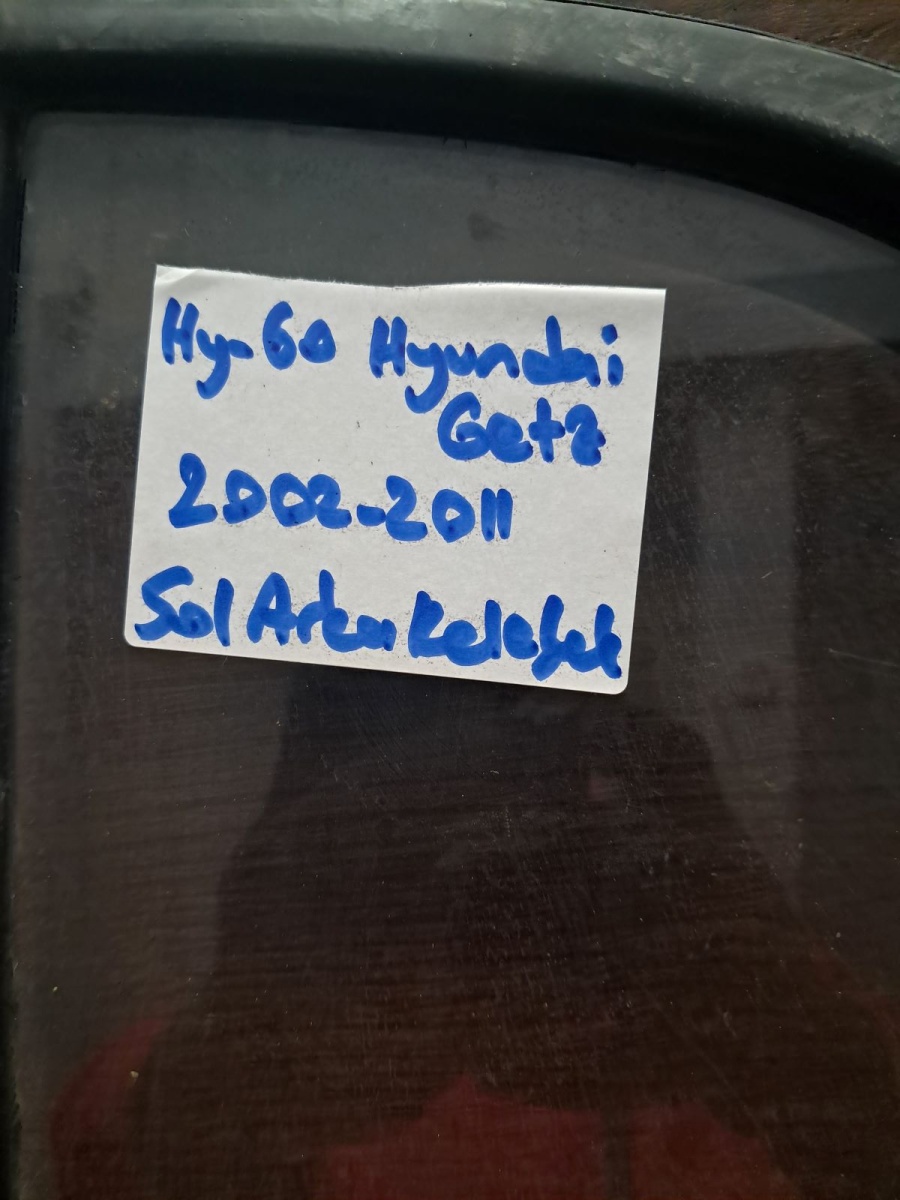 Hy-60 Hyundai
Getz
2002-2011
Sol Arka Kelebek